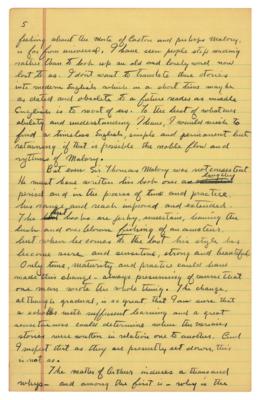 5
feeling about the            of Caxton and perhaps Malory,
is far from answered. I have seen people stop reading
rather than to look up an old and lovely word now
lost to us. I don't want to translate these stories
into modern English which in a short time may be
as dated and obsolete to a future reader as middle
English is to most of us. To the best of whatever
ability and understanding I have, I would wish to
find a timeless English, simple and permanent but
retaining if that is possible the noble flow and
rythms of Malory.
But even Sir Thomas Malory was not consistent
He must have written this work over a lengthy
period and in the process of time and practice
his range and reach enlarged and extended.
The first books are jerky, uncertain, leaving the
lush and over blown            of an amateur.
but when he comes to the last his style has
become sure and sensitive, strong and beautiful
Only time, maturity and practice could have
made this change - always presuming of course that
one man wrote the whole thing. The change,
although gradual, is so great that I am sure that
a scholar with sufficient learning and a great
sensitiveness could determine when the various
stories were written in relation one to another. And
I suspect that as they are presently set down, this
is not so.
The matter of Arthur induces a thousand
whys - and among the first is - why is the